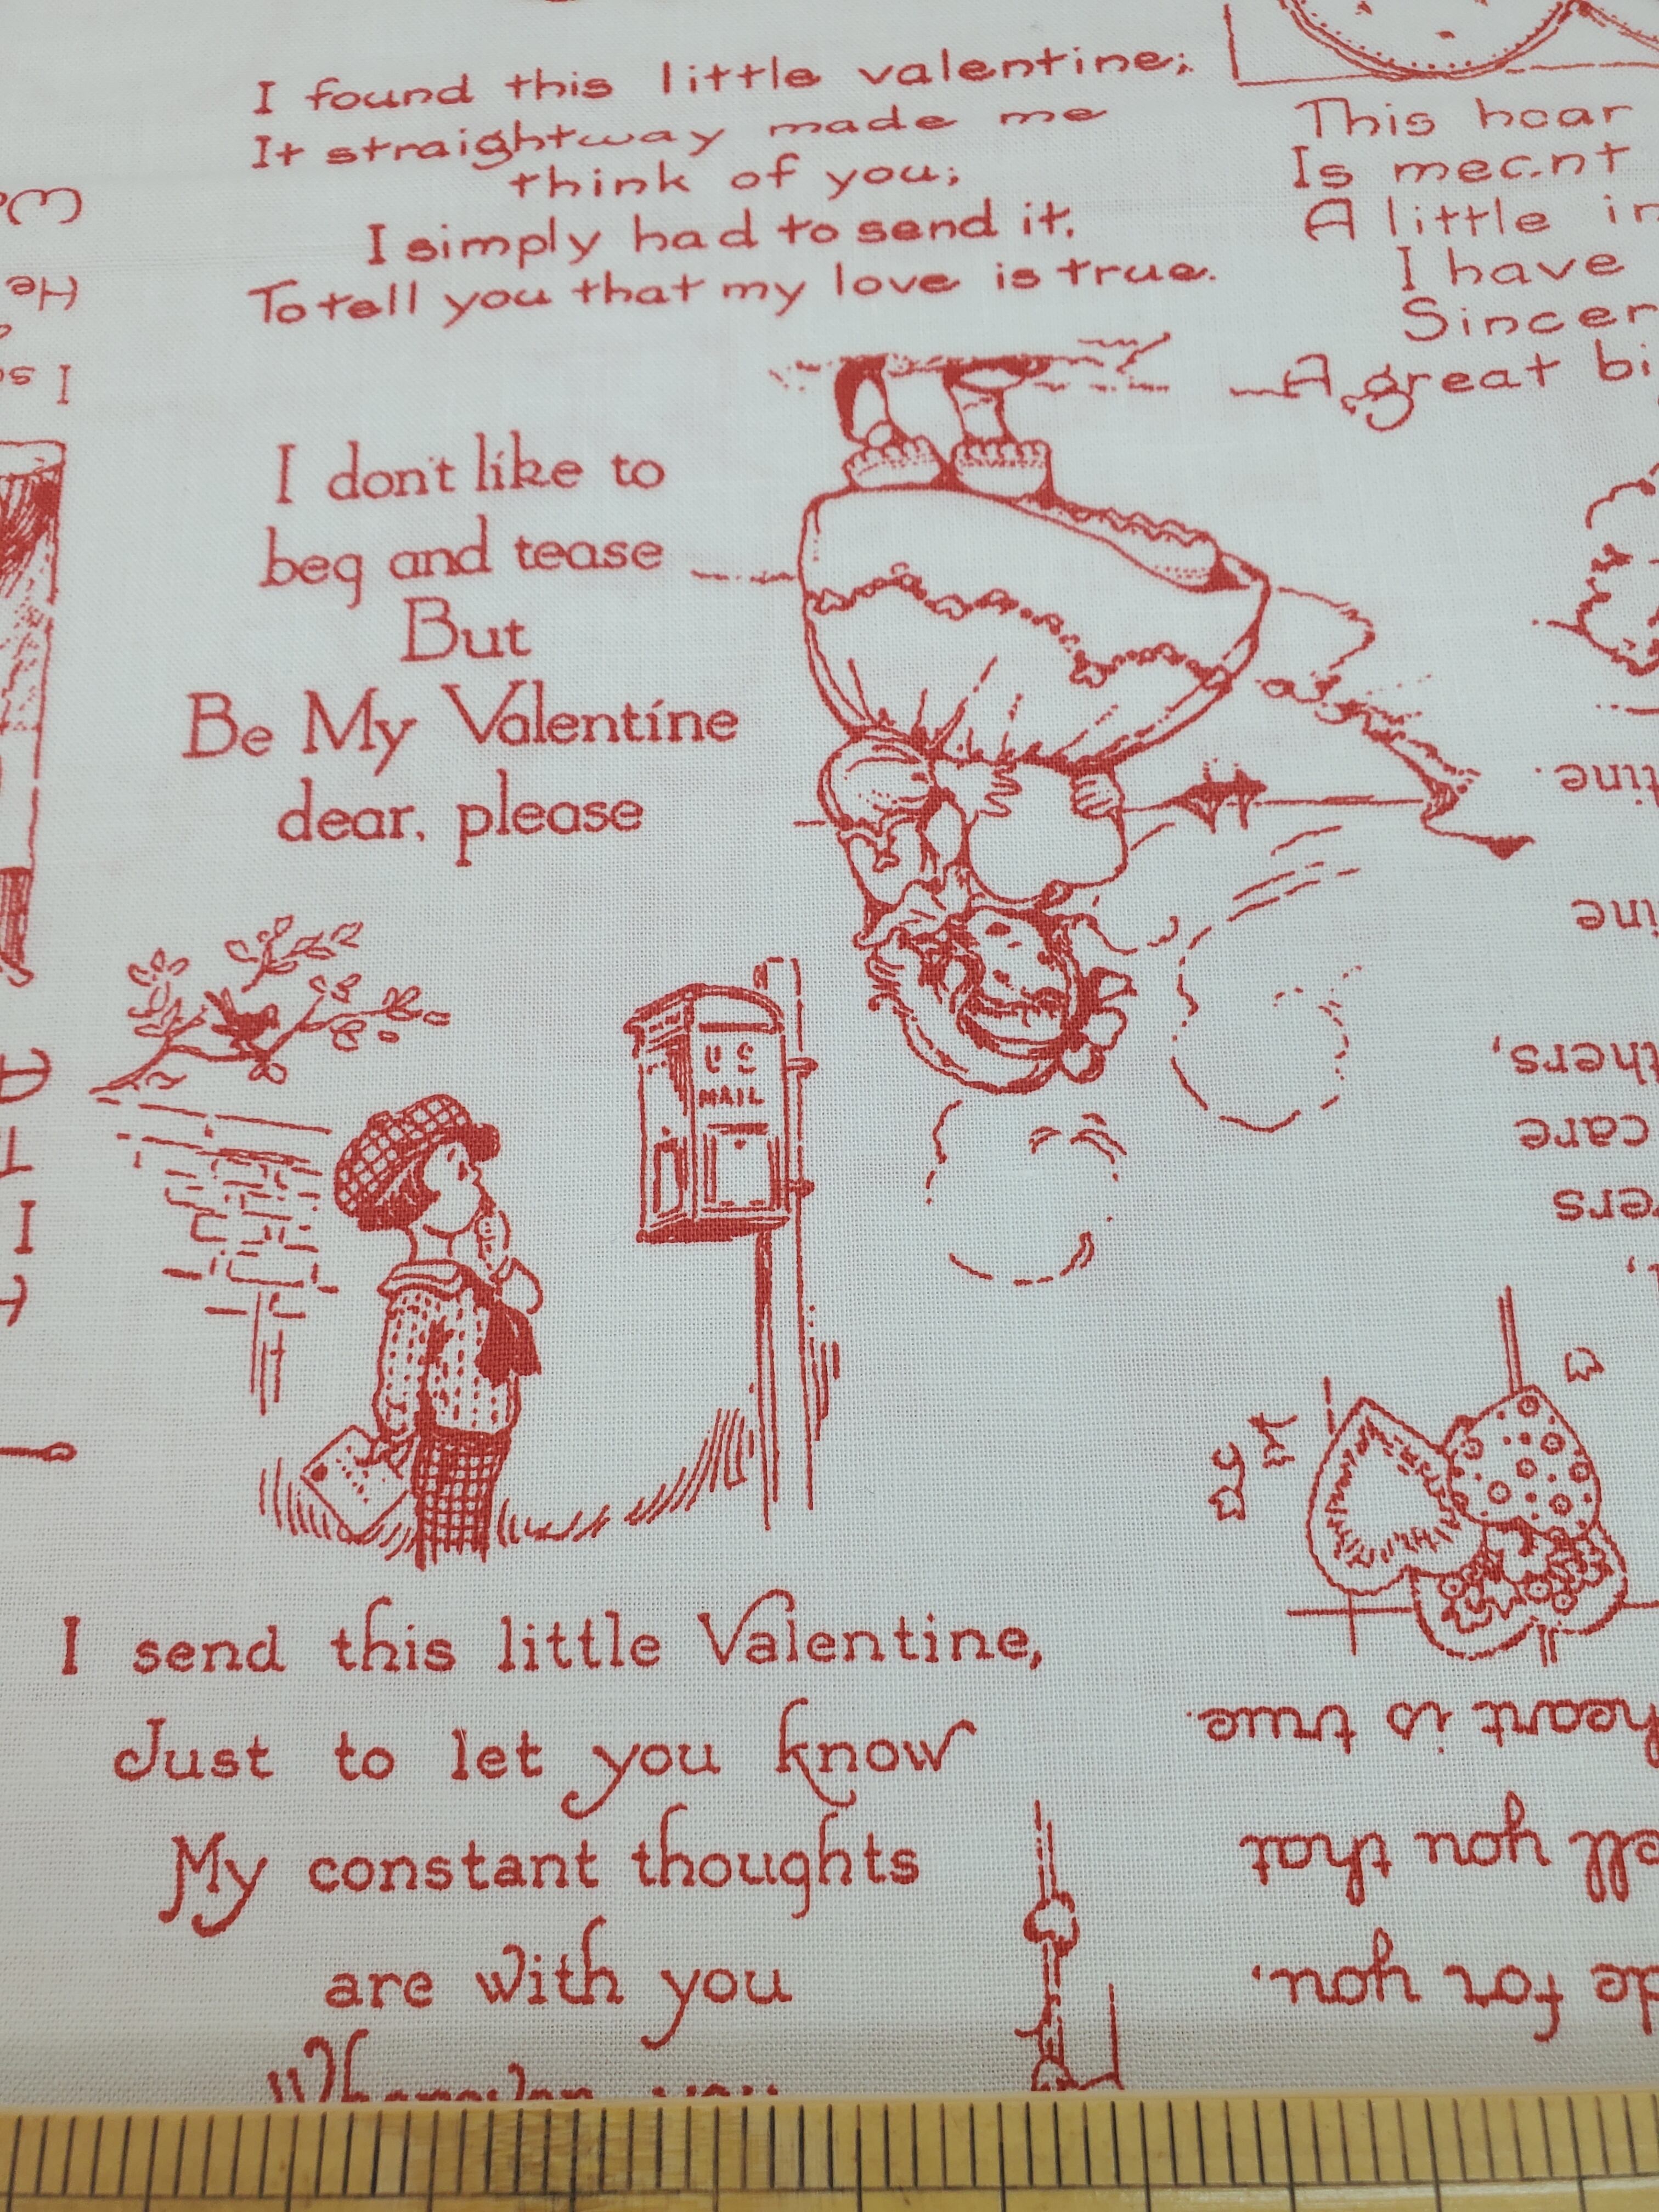 I found this little valentine;
It straightway made me
think of you;
I simply had to send it,
To tell you that my love is true.
This
Is meant
A little
I have
A great
I don't like to
beg and tease
But
Be My Valentine
dear, please
U S
MAIL
I send this little Valentine,
Just to let you know
My constant thoughts
are with you
He
I
care
heart is true.
you that
for you.